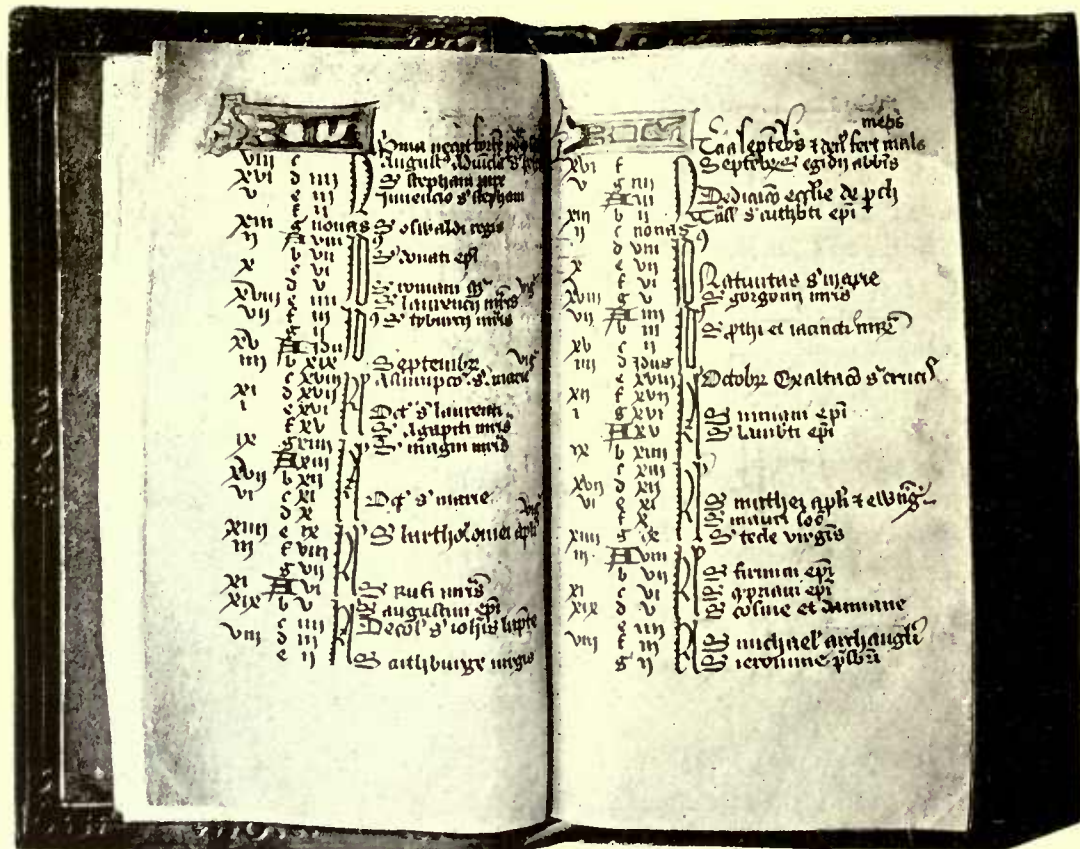 KL
viii c August' Aduīcla s'
xvi d iiii S' stephani
v e iii Inuencio s' stephani
f ii
xiii g nonas S' oswaldi regis
ii A viii
b vii S' donati epī
x c vi
d v S' romani mr̄ vig'
xviii e iiii S' laurencii mr̄is
vii f iii S' tyburcii mr̄is
g ii
xv A Idus
iiii b xix Septembr' vig'
c xviii Assumpcō s' marie
xi d xvii
i e xvi Oct' s' laurenti
f xv S' Agapiti mr̄is
ix g xiiii S' magni mr̄is
A xiii
xvii b xii
vi c xi Oct' s' marie
d x vig'
xiiii e ix S' bartholomei apli
iii f viii
g vii
xi A vi S' Rufi mr̄is
xix b v S' augustini epī
c iiii Decol' s' iohīs bapte
viii d iii
e ii S' aithburge virgīs
KL Tcia septēbr̄s & den' fert mala mēbris
xvi f Septēbr' S' egidii abbīs
v g iiii
A iii Dedicacō ecclie de
xiii b ii Tāsl' s' cuthbti epī
ii c nonas
d viii
x e vii
f vi Natiuitas s' marie
xviii g v S' gorgonii mr̄is
vii A iiii
b iii S' pthi et iacincti mr̄
xv c ii
iiii d Idus
e xviii Octobr' Exaltacō s' crucis
xii f xvii
i g xvi S' niniani epī
A xv S' lambti epī
ix b xiiii
c xiii
xvii d xii
vi e xi S' mathei apli & ewāg'
f x S' maurī soc'
xiiii g ix S' tecle virgīs
iii A viii
b vii S' firmini epī
xi c vi S' cypriani epī
xix d v S' cosme et damiane
e iiii
viii f iii S' michael' archangli
g ii S' ieronime pbri